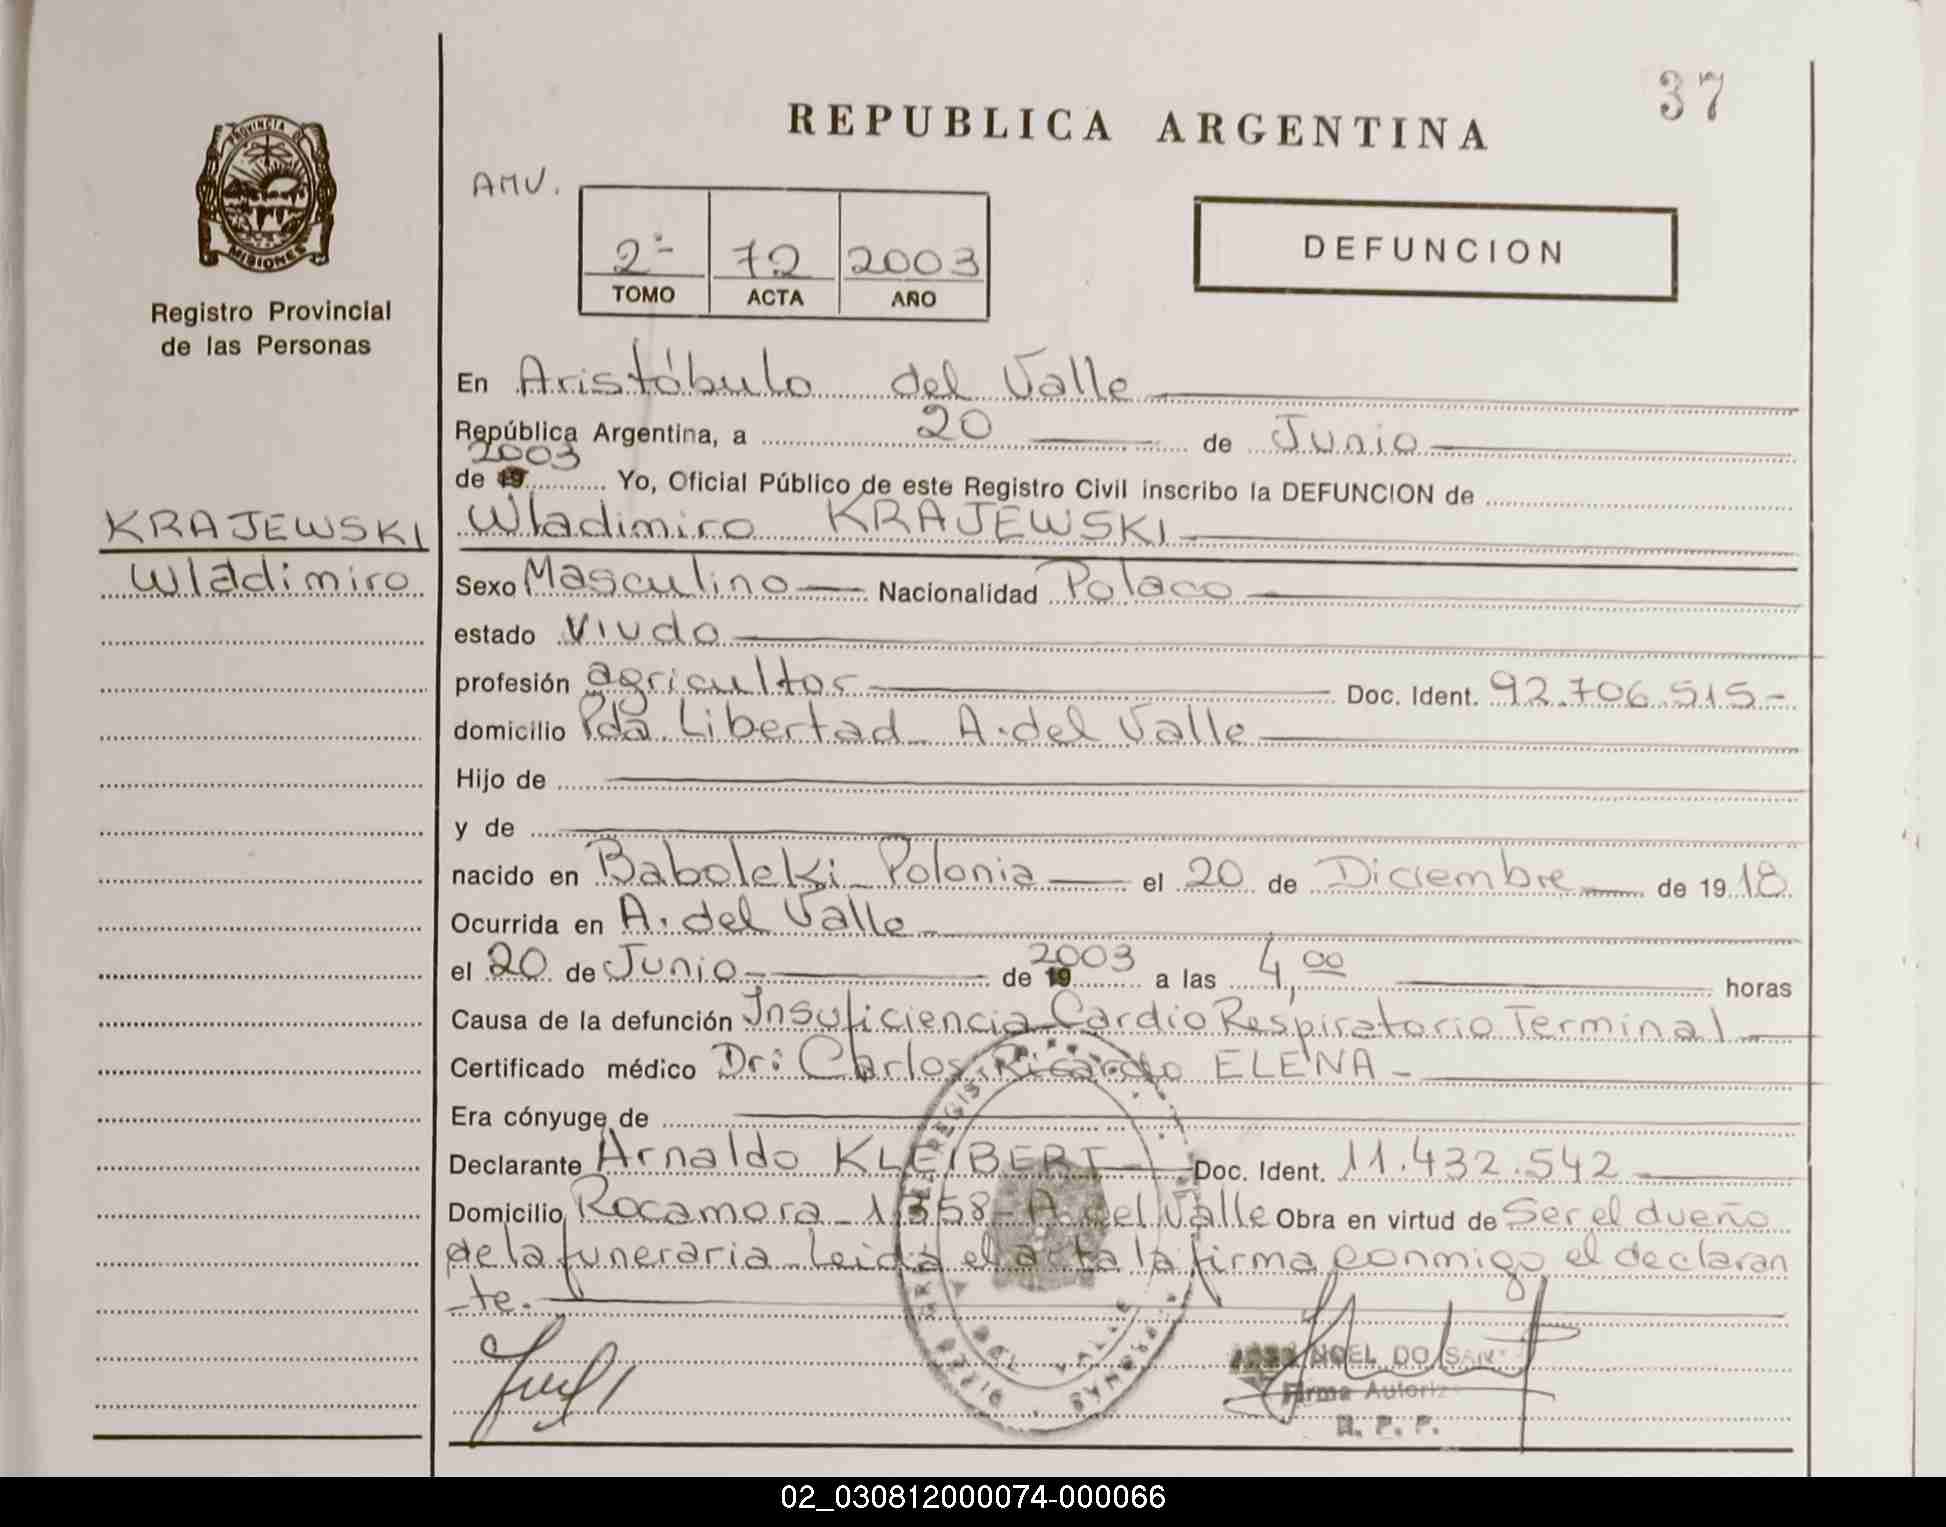 37
REPUBLICA ARGENTINA
PROVINCIA DE
MISIONES
AMV.
2º 72 2003
TOMO ACTA AÑO
DEFUNCION
Registro Provincial
de las Personas
En Aristóbulo del Valle
República Argentina, a 20 de Junio
2003
de 19 Yo, Oficial Público de este Registro Civil inscribo la DEFUNCION de
KRAJEWSKI
Wladimiro
Wladimiro KRAJEWSKI
Sexo Masculino Nacionalidad Polaco
estado Viudo
profesión agricultor Doc. Ident. 92.706.515-
domicilio Pda Libertad - A. del Valle
Hijo de
y de
nacido en Baboleki - Polonia el 20 de Diciembre de 1918
Ocurrida en A. del Valle
el 20 de Junio de 19 2003 a las 4,00 horas
Causa de la defunción Insuficiencia Cardio Respiratorio Terminal
Certificado médico Dr: Carlos Ricardo ELENA -
Era cónyuge de
Declarante Arnaldo KLEIBERT - Doc. Ident. 11.432.542
Domicilio Rocamora - 1358 - A. del Valle Obra en virtud de Ser el dueño
de la funeraria - Leida el acta la firma conmigo el declaran
-te.
DEL VALLE
NOEL DO SAN
Firma Autoriz
R. P. P.
02_030812000074-000066